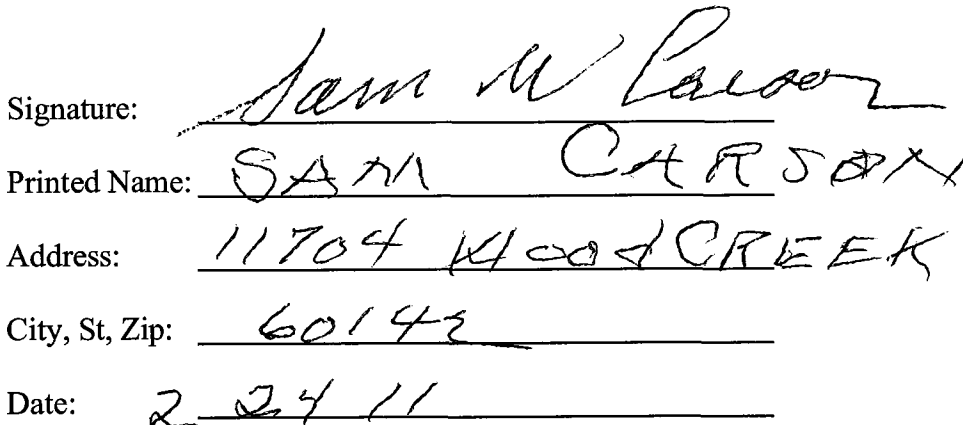 Signature: Sam W Carson
Printed Name: SAM CARSON
Address: 11704 WoodCREEK
City, St, Zip: 60142
Date: 2 24 11